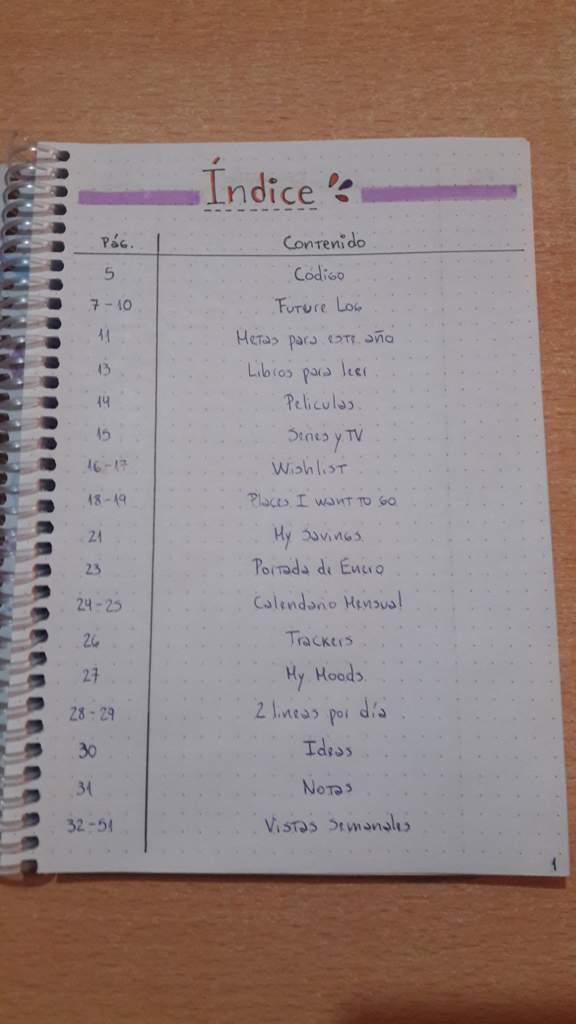 Índice
Pág. Contenido
5 Código
7-10 Future Log
11 Metas para este año
13 Libros para leer
14 Peliculas
15 Series y TV
16-17 Wishlist
18-19 Places I want to go
21 My Savings
23 Portada de Enero
24-25 Calendario Mensual
26 Trackers
27 My Moods
28-29 2 lineas por día
30 Ideas
31 Notas
32-51 Vistas Semanales
1